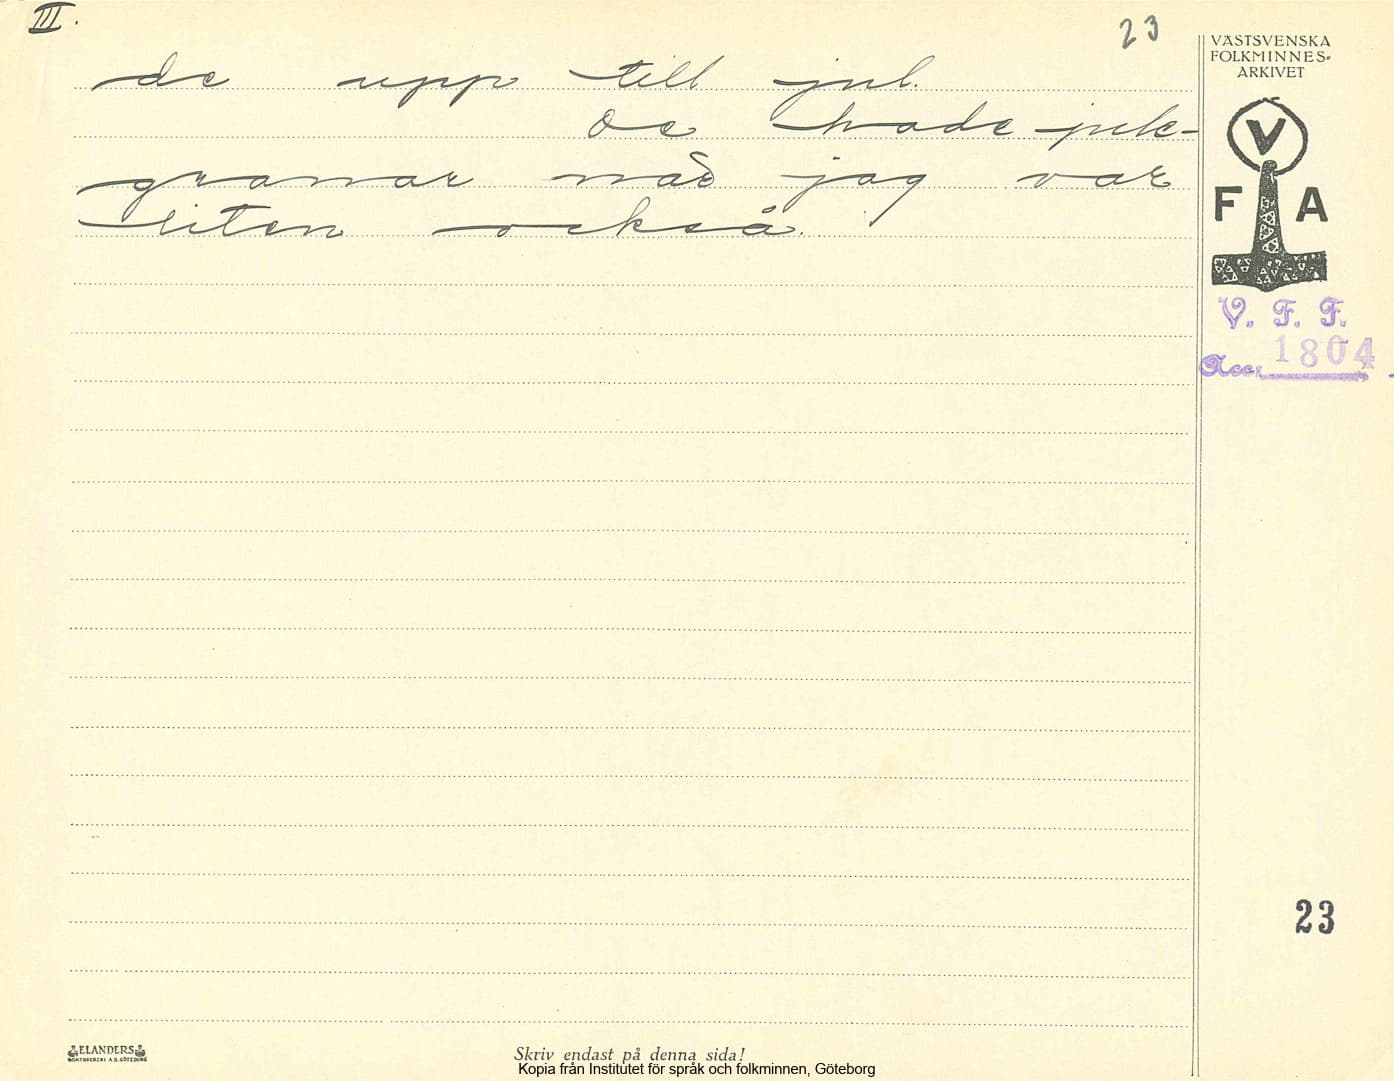 III.
23
VÄSTSVENSKA
FOLKMINNES-
ARKIVET
de upp till jul.
De hade jul-
granar när jag var
liten också.
V
F A
V. F. F.
Acc. 1804
23
ELANDERS
BOKTRYCKERI A.B. GÖTEBORG
Skriv endast på denna sida!
Kopia från Institutet för språk och folkminnen, Göteborg